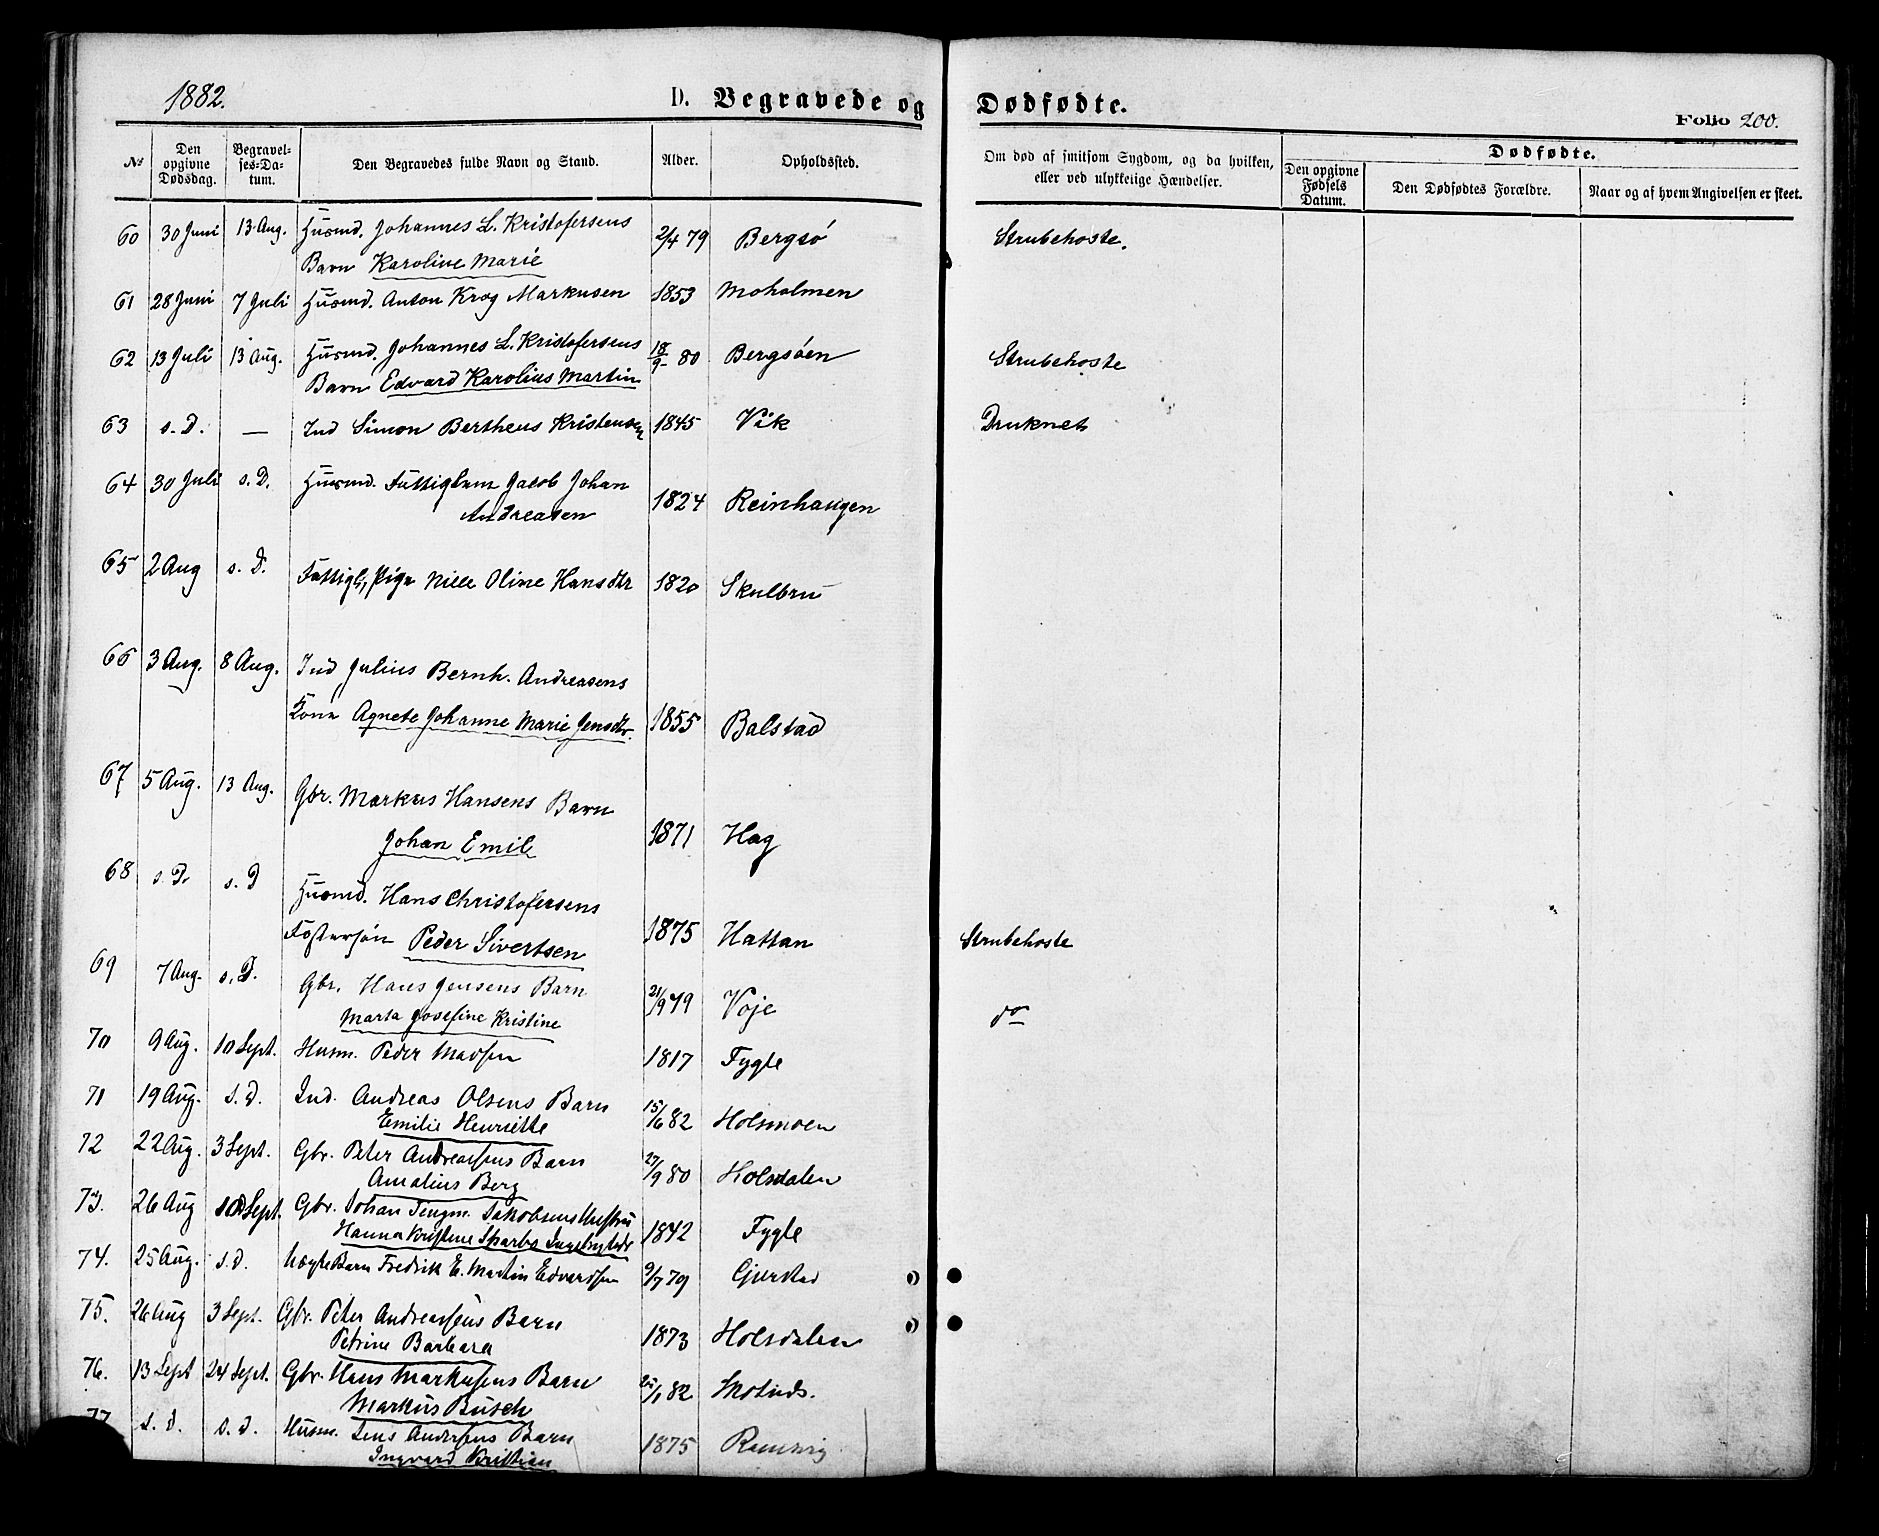 1882.
D. Begravede og Dødfødte.
Folio 200.
No
Den opgivne Dødsdag.
Begravelses-Datum.
Den Begravedes fulde Navn og Stand.
Alder.
Opholdssted.
Om død af smitsom Sygdom, og da hvilken, eller ved ulykkelige Hændelser.
Dødfødte.
Den opgivne Fødsels Datum.
Den Dødfødtes Forældre.
Naar og af hvem Angivelsen er skeet.
60 30 Juni 13 Aug. Husmd. Johannes L. Kristofersens 2/4 79 Bergsö Strubehoste.
Barn Karoline Marie
61 28 Juni 7 Juli Husmd. Anton Krog Markusen 1853 Moholmen
62 13 Juli 13 Aug. Husmd. Johannes L. Kristofersens 18/9 80 Bergsöen Strubehoste
Barn Edvard Karolius Martin
63 s. D. — Ind Simon Bertheus Kristensen 1845 Vik Druknet
64 30 Juli s. D. Husmd. Fattiglem Jacob Johan
Andreasen 1824 Reinhaugen
65 2 Aug s. D. Fattigl. Pige Nille Oline Hansdtr 1820 Skulbru
66 3 Aug. 8 Aug. Ind Julius Bernh. Andreasens
Kone Agnete Johanne Marie Jensdtr. 1855 Balstad
67 5 Aug. 13 Aug. Gbr. Markus Hansens Barn
Johan Emil 1871 Hag
68 s. D. s. D Husmd. Hans Christofersens
Fostersön Peder Sivertsen 1875 Hattan Strubehoste
69 7 Aug. s. D. Gbr. Hans Jensens Barn
Marta Josefine Kristine 21/9 79 Voje do
70 9 Aug. 10 Sept. Husm. Peder Madsen 1817 Fygle
71 19 Aug. s. d. Ind. Andreas Olsens Barn
Emilie Henriette 15/6 82 Holsmoen
72 22 Aug. 3 Sept. Gbr. Peter Andreassens Barn
Amalius Berg 27/9 80 Holsdalen
73. 26 Aug 10 Sept. Gbr. Johan Jakobsens Hustru
Hanna Kristine 1842 Fygle
74. 25 Aug. s. d. Uægte Barn Fredrik E. Martin Edvardsen 9/7 79 Gjerstad
75. 26 Aug 3 Sept. Gbr. Peter Andreassens Barn
Petrine Barbara 1873 Holsdalen
76. 13 Sept 24 Sept. Gbr. Hans Markusens Barn
Markus Busch 82
77 s. d. s. d. Husm. Jens Andersens Barn
Ingvard Kristian 1875